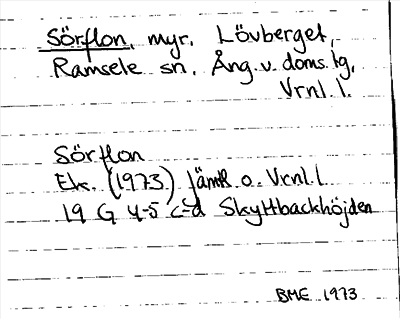 Sörflon, myr, Lövberget,
Ramsele sn, Ång. v. doms. tg,
Vrnl. l.
Sörflon
Ek. (1973) Jämtl. o. Vrnl. l.
19 G 4-5 c-d Skyttbackhöjden
BME 1973